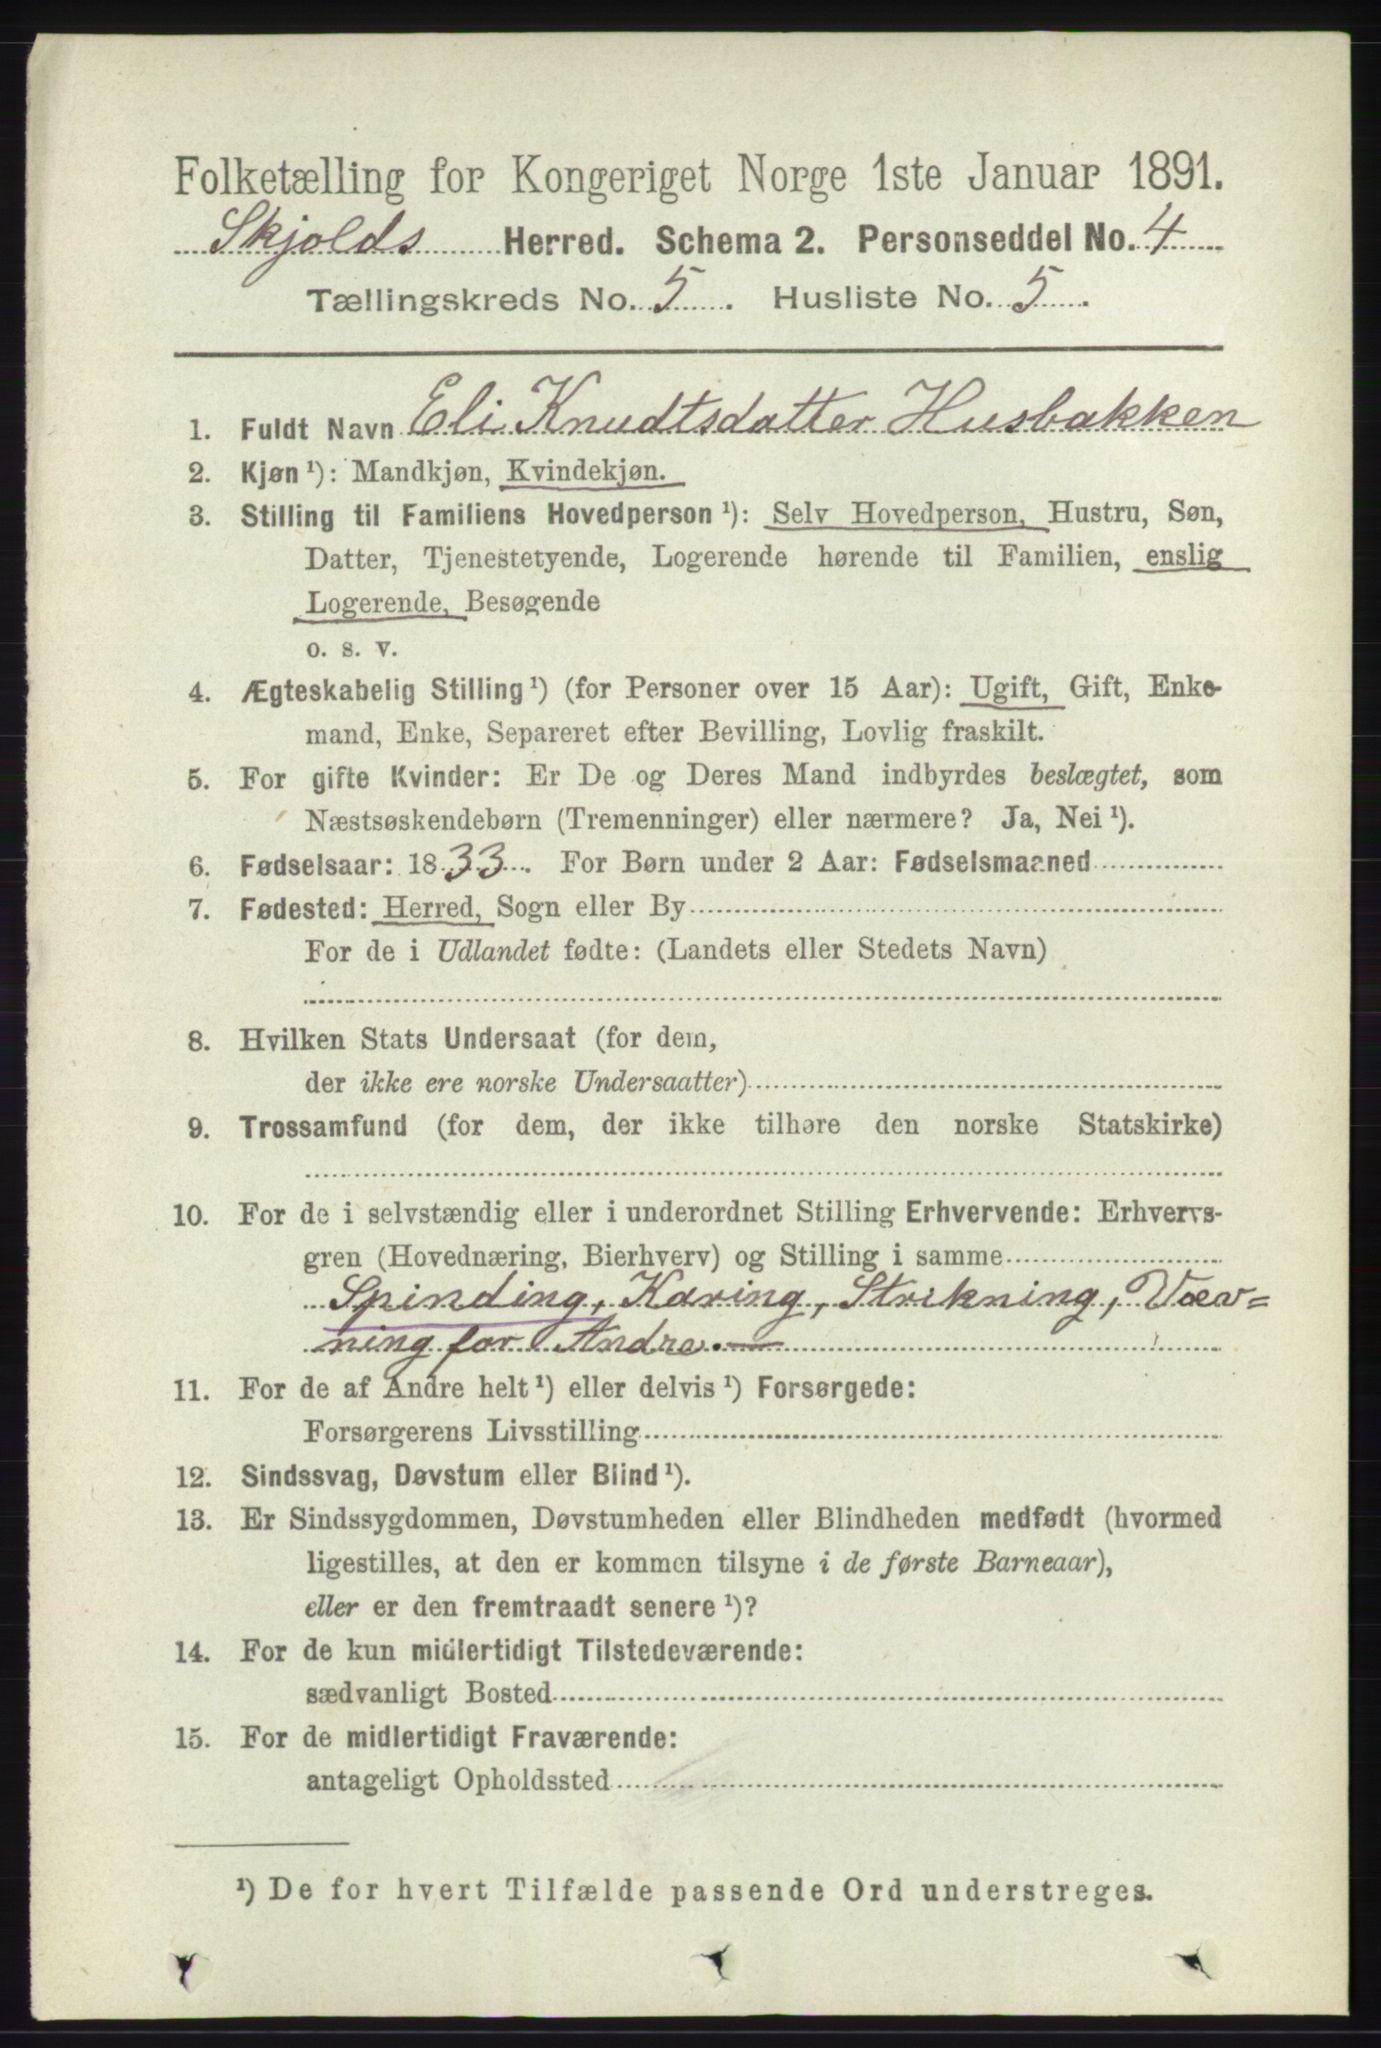 Folketælling for Kongeriget Norge 1ste Januar 1891.
Skjolds Herred. Schema 2. Personseddel No. 4
Tællingskreds No. 5. Husliste No. 5.
1. Fuldt Navn Eli Knudtsdatter Husbakken
2. Kjøn ¹): Mandkjøn, Kvindekjøn.
3. Stilling til Familiens Hovedperson ¹): Selv Hovedperson, Hustru, Søn,
Datter, Tjenestetyende, Logerende hørende til Familien, enslig
Logerende, Besøgende
o. s. v.
4. Ægteskabelig Stilling ¹) (for Personer over 15 Aar): Ugift, Gift, Enke-
mand, Enke, Separeret efter Bevilling, Lovlig fraskilt.
5. For gifte Kvinder: Er De og Deres Mand indbyrdes beslægtet, som
Næstsøskendebørn (Tremenninger) eller nærmere? Ja, Nei ¹).
6. Fødselsaar: 1833. For Børn under 2 Aar: Fødselsmaaned
7. Fødested: Herred, Sogn eller By
For de i Udlandet fødte: (Landets eller Stedets Navn)
8. Hvilken Stats Undersaat (for dem,
der ikke ere norske Undersaatter)
9. Trossamfund (for dem, der ikke tilhøre den norske Statskirke)
10. For de i selvstændig eller i underordnet Stilling Erhvervende: Erhvervs-
gren (Hovednæring, Bierhverv) og Stilling i samme
Spinding, Karing, Strikning, Væv=
ning for Andre. —
11. For de af Andre helt ¹) eller delvis ¹) Forsørgede:
Forsørgerens Livsstilling
12. Sindssvag, Døvstum eller Blind ¹).
13. Er Sindssygdommen, Døvstumheden eller Blindheden medfødt (hvormed
ligestilles, at den er kommen tilsyne i de første Barneaar),
eller er den fremtraadt senere ¹)?
14. For de kun midlertidigt Tilstedeværende:
sædvanligt Bosted
15. For de midlertidigt Fraværende:
antageligt Opholdssted
¹) De for hvert Tilfælde passende Ord understreges.